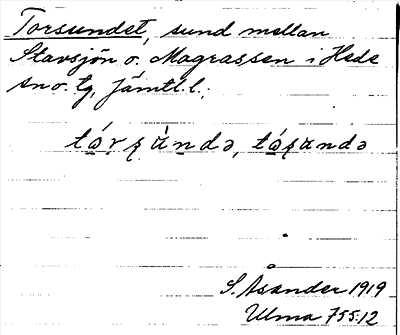 Torsundet, sund mellan
Stavsjön o. Magrassen i Hede
sn o. tg, Jämtl. l.;
tórşùndə, tóşundə
S. Åsander 1919
Ulma 755:12